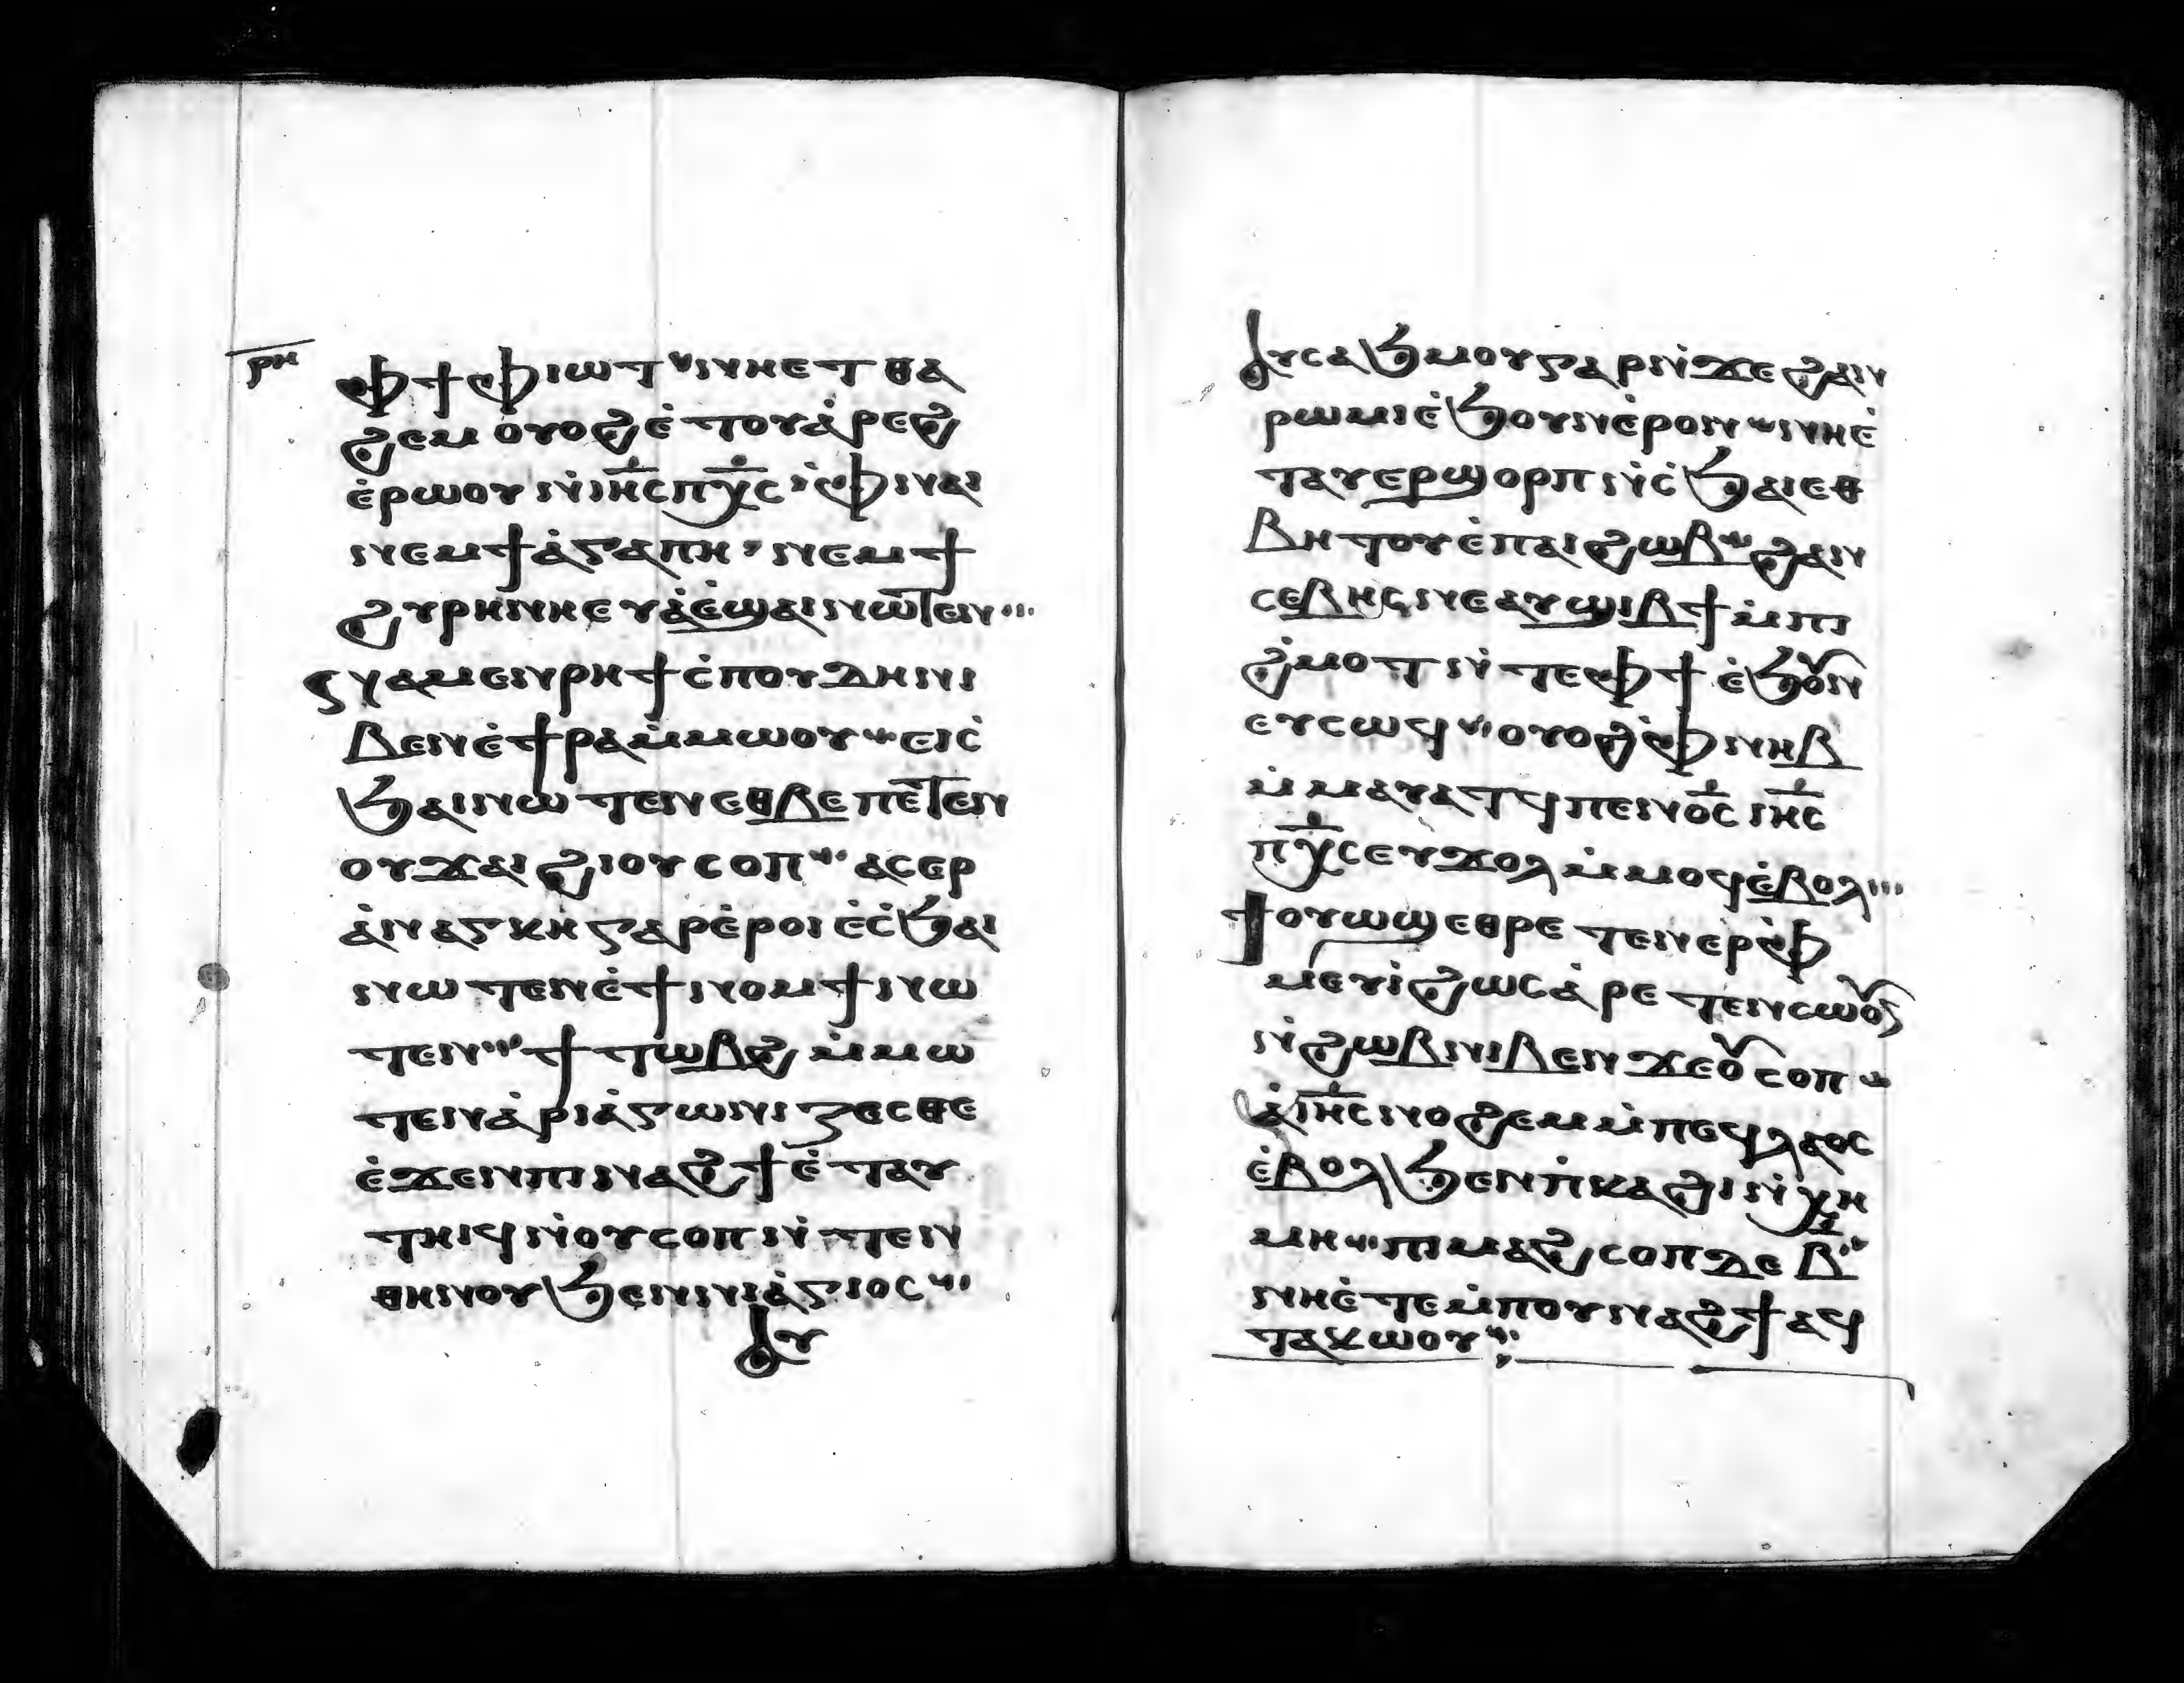 ⲣⲏ
ⲫϯ ⲫⲓⲱⲧ ⲛⲏⲉⲧⲑⲁ
ϩⲉⲙ ⲟⲩⲟϩ ⲉ̇ⲧⲟⲩⲁ̇ⲣⲉϩ
ⲉ̇ⲣⲱⲟⲩ ⲛ̇ⲓⲏ̅ⲥ̅ ⲡⲭ̅ⲥ̅ ⲫ̇ⲛⲁⲓ
ⲛⲉⲙ ϯⲁ̇ⲅⲁⲡⲏ ⲛⲉⲙ ϯ
ϩⲩⲣⲏⲛⲏ ⲉⲩⲁ̇ⲉ̇ϣⲁⲓ ⲛⲱⲧⲉⲛ
ⲛⲁⲙⲉⲛⲣⲁϯ ⲥ̇ⲡⲟⲩⲇⲏ ⲛⲓ
ⲃⲉⲛ ⲉ̇ϯⲣⲁ ⲙ̇ⲙⲱⲟⲩ ⲉⲓⲥ̇
ϧⲁⲓ ⲛⲱⲧⲉⲛ ⲉⲑⲃⲉ ⲡⲉⲧⲉⲛ
ⲟⲩϫⲁⲓ ϩⲓⲟⲩⲥⲟⲡ ⲁⲥⲉⲣ
ⲁ̇ⲛⲁⲅⲕⲏ ⲅⲁⲣ ⲉ̇ⲣⲟⲓ ⲉ̇ⲥ̇ϧⲁⲓ
ⲛⲱⲧⲉⲛ ⲉ̇ϯⲛⲟⲙϯ ⲛⲱ
ⲧⲉⲛ ϯⲧⲱⲃϩ ⲙ̇ⲙⲱ
ⲧⲉⲛ ⲁ̇ⲣⲓⲁ̇ⲅⲱⲛⲓⲍⲉⲥⲑⲉ
ⲉ̇ϫⲉⲛ ⲡⲓⲛⲁϩϯ ⲉ̇ⲧⲁⲩ
ⲧⲏⲓϥ ⲛ̇ⲟⲩⲥⲟⲡ ⲛ̇ⲧⲉⲛ
ⲑⲏⲛⲟⲩ ϧⲉⲛ ⲛⲓⲁ̇ⲅⲓⲟⲥ
ⲁⲩ
ⲁⲩⲥⲁϧⲙⲟⲩ ⲅⲁⲣ ⲛ̇ϫⲉ ϩⲁⲛ
ⲣⲱⲙⲓ ⲉ̇ϧⲟⲩⲛ ⲉ̇ⲣⲟⲛ ⲛⲏⲉ̇
ⲧⲁⲩⲉⲣϣⲟⲣⲡ ⲛ̇ⲥ̇ϧⲁⲓ ⲉⲑ
ⲃⲏⲧⲟⲩ ⲉ̇ⲡⲁⲓϩⲱⲃ ϩⲁⲛ
ⲥⲉⲃⲏⲥ ⲛⲉ ⲁⲩϣⲓⲃϯ ⲙ̇ⲡⲓ
ϩ̇ⲙⲟⲧ ⲛ̇ⲧⲉ ⲫϯ ⲉ̇ϧⲟⲩⲛ
ⲉⲩⲥⲱϥ ⲟⲩⲟϩ ⲫ̇ⲛⲏⲃ
ⲙ̇ⲙⲁⲩⲁⲧϥ ⲡⲉⲛⲟ̅ⲥ̅ ⲓⲏ̅ⲥ̅
ⲡⲭ̅ⲥ̅ ⲉⲩϫⲟⲗ ⲙ̇ⲙⲟϥ ⲉ̇ⲃⲟⲗ
ϯⲟⲩⲱϣ ⲉⲑⲣⲉⲧⲉⲛⲉⲣⲫ̇
ⲙⲉⲩⲓ̇ ϩⲱⲥ ⲁ̇ⲣⲉⲧⲉⲛⲥⲱⲟⲩⲛ
ⲛ̇ϩⲱⲃ ⲛⲓⲃⲉⲛ ϫⲉ ⲟⲩⲥⲟⲡ
ⲁ̇ ⲓⲏ̅ⲥ̅ ⲛⲟϩⲉⲙ ⲙ̇ⲡⲉϥⲗⲁⲟⲥ
ⲉ̇ⲃⲟⲗ ϧⲉⲛ ⲡ̇ⲕⲁϩⲓ ⲛ̇ⲭⲏ
ⲙⲏ ⲡⲓⲙⲁϩⲥⲟⲡ ⲇⲉ ⲃ̅
ⲛⲏⲉ̇ⲧⲉⲙ̇ⲡⲟⲩⲛⲁϩϯ ⲁϥ
ⲧⲁⲕⲱⲟⲩ